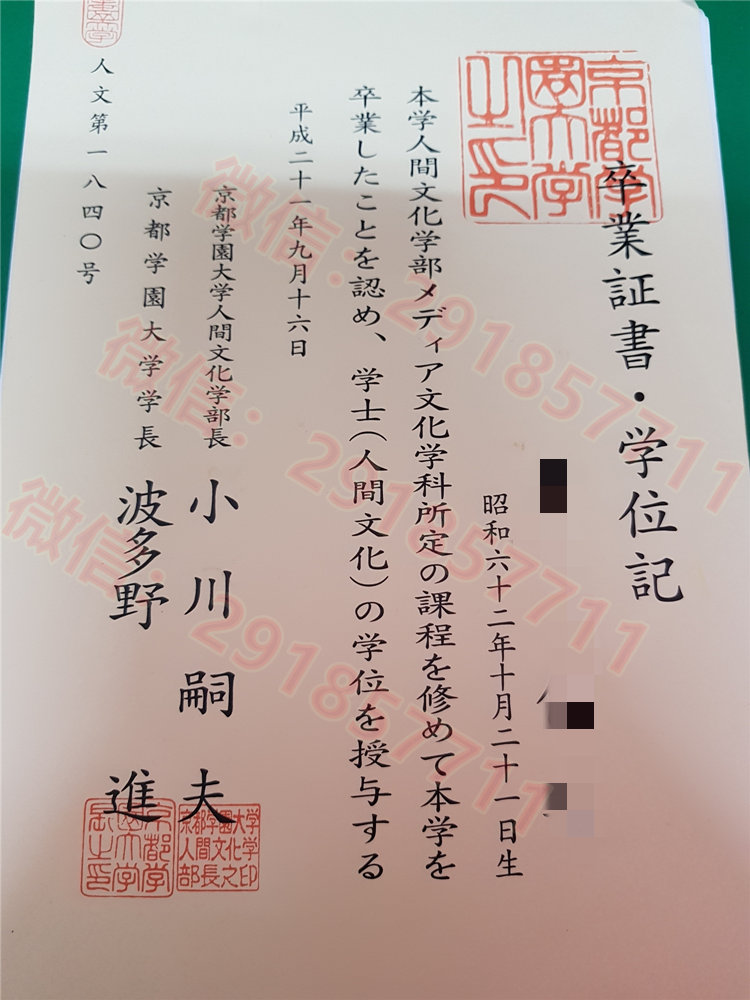 卒業証書・学位記
昭和六十二年十月二十一日生
本学人間文化学部メディア文化学科所定の課程を修めて本学を
卒業したことを認め、学士(人間文化)の学位を授与する
平成二十一年九月十六日
京都学園大学人間文化学部長 小川嗣夫
京都学園大学学長 波多野 進
人文第一八四〇号
京都学園大学之印
京都学園大学
人間文化学
部長之印
微信：291857711
微信：291857711
微信：291857711